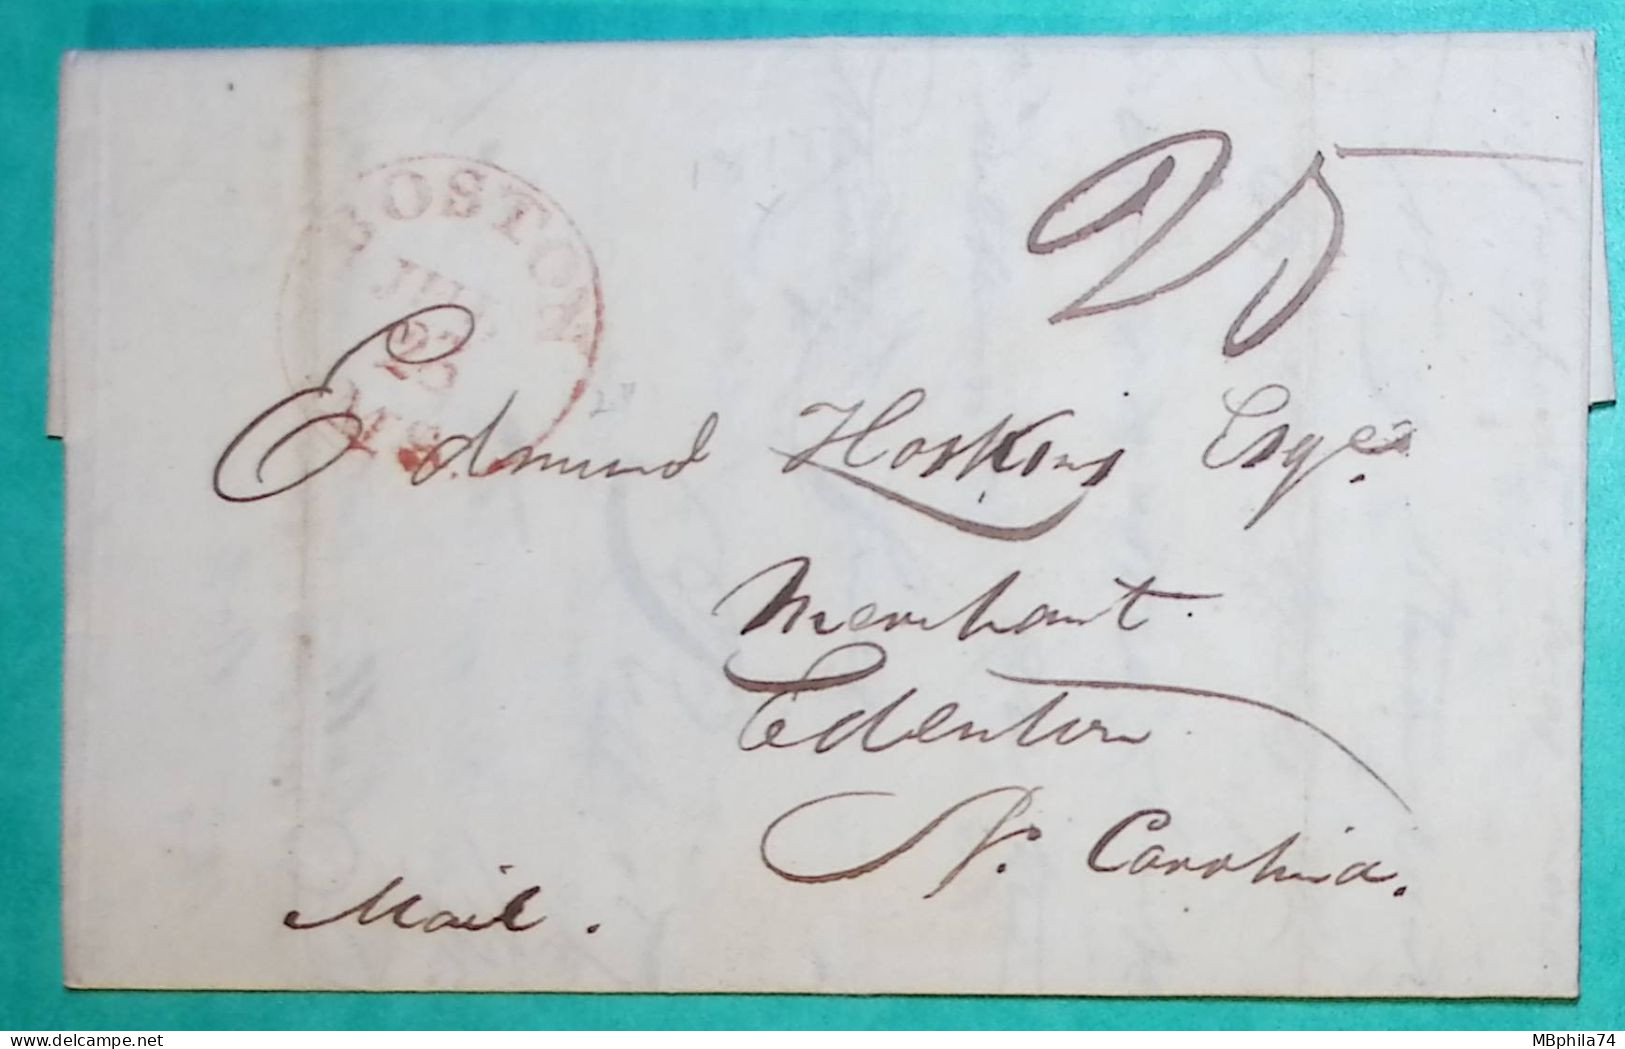 BOSTON
JUL
MS
25
Edmund Hoskins Esqr.
Merchant.
Edenton
N. Carolina.
Mail.
delcampe.net
MBphila74